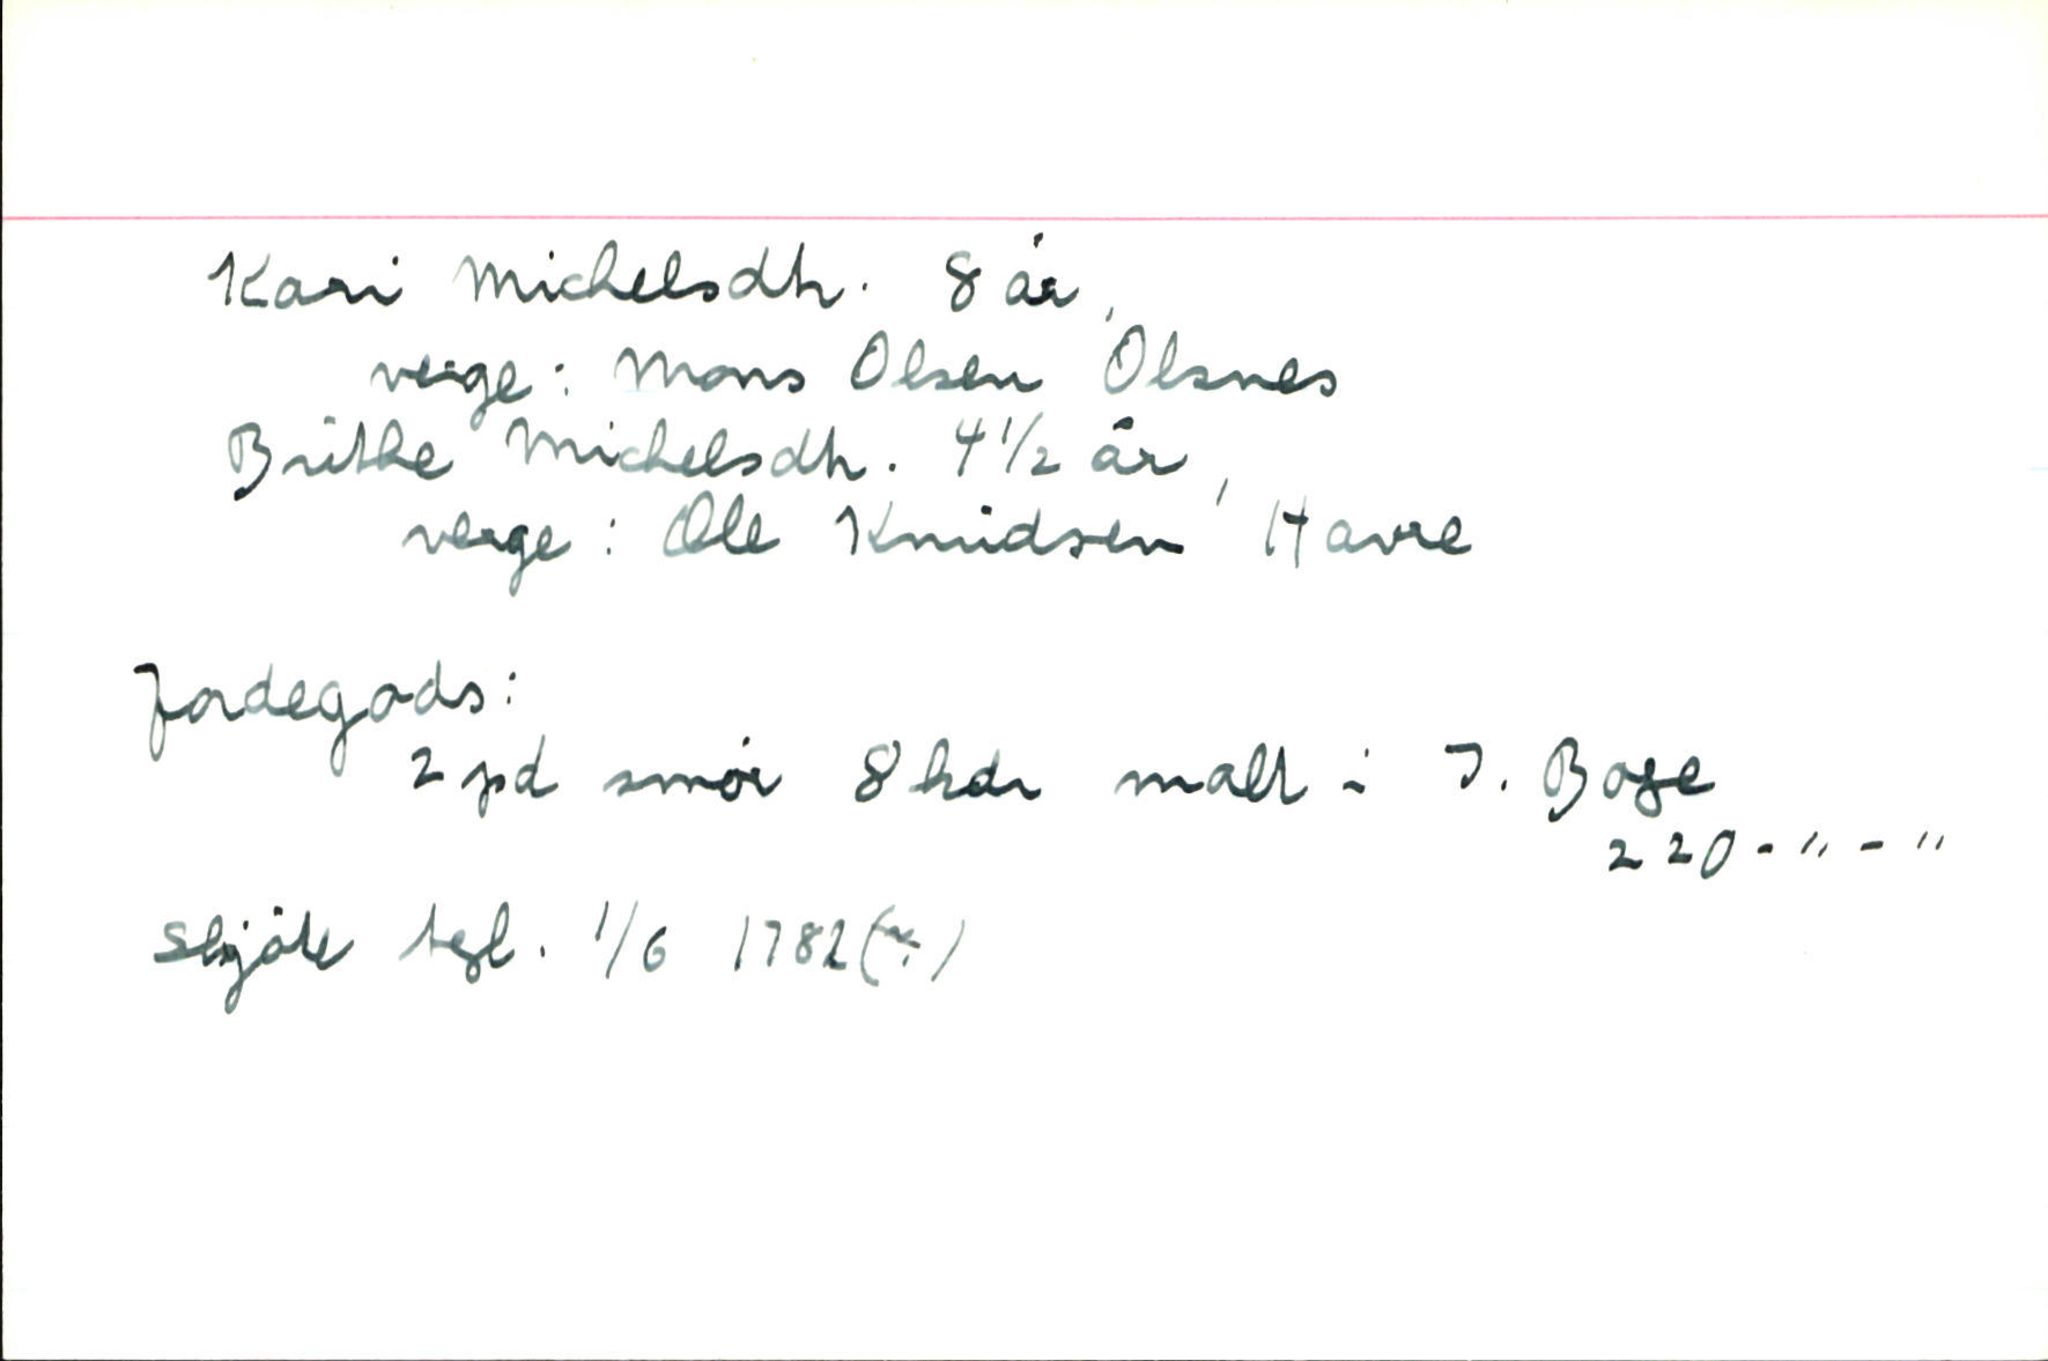 Kari Michelsdtr. 8 år,
verge: Mons Olsen Olsnes
Brithe Michelsdtr. 4 1/2 år,
verge: Ole Knudsen Havre
Jordegods:
2 pd smør 8 kdr malt i I. Boge
220-"-"
skjöte tgl. 1/6 1782 (?)